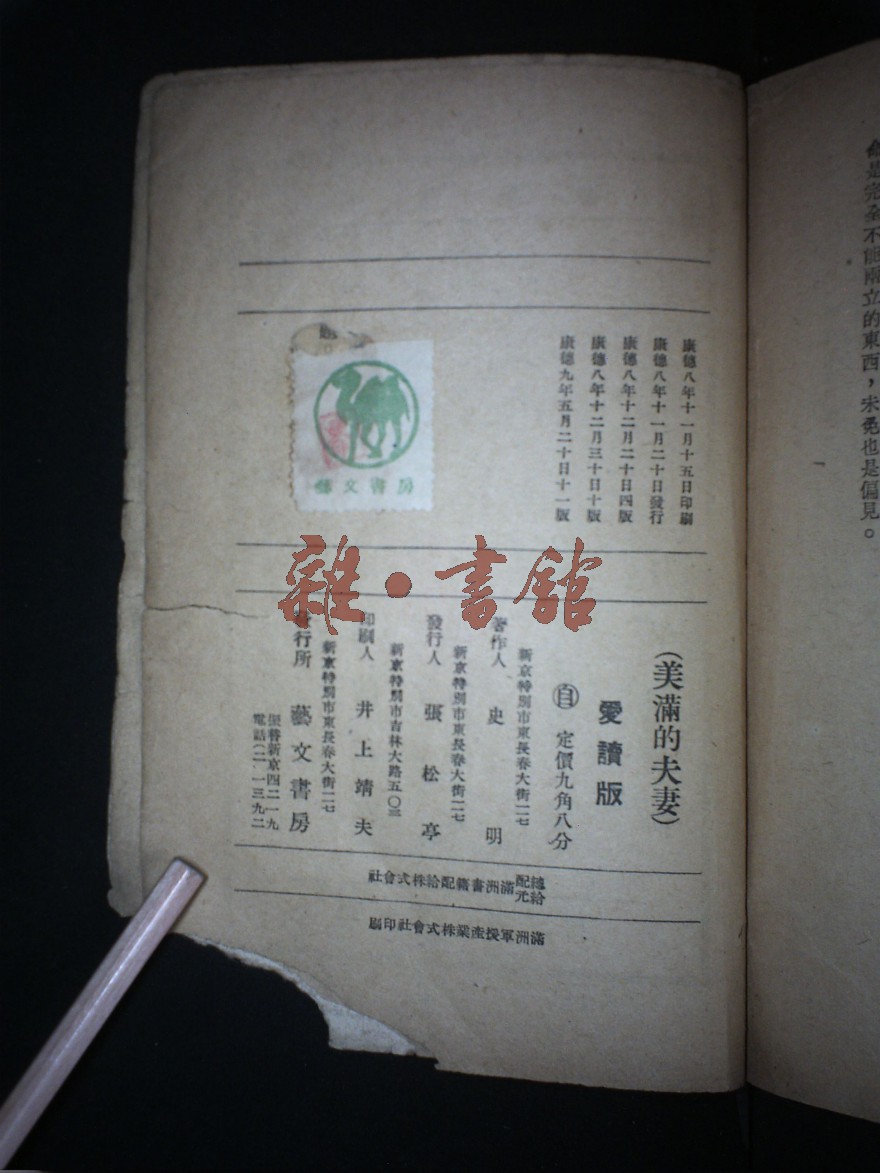 命是完全不能兩立的東西，未免也是偏見。
康德八年十一月十五日印刷
康德八年十一月二十日發行
康德八年十二月二十日四版
康德八年十二月三十日十版
康德九年五月二十日十一版
藝文書房
雜·書館
（美滿的夫妻）
愛讀版
自 定價九角八分
新京特別市東長春大街一一七
著作人 史明
新京特別市東長春大街一一七
發行人 張松亭
新京特別市吉林大路五〇三
印刷人 井上靖夫
新京特別市東長春大街一一七
發行所 藝文書房
振替新京四二一九
電話（二）一三九二
總配給元 滿洲書籍配給株式會社
滿洲軍援產業株式會社印刷